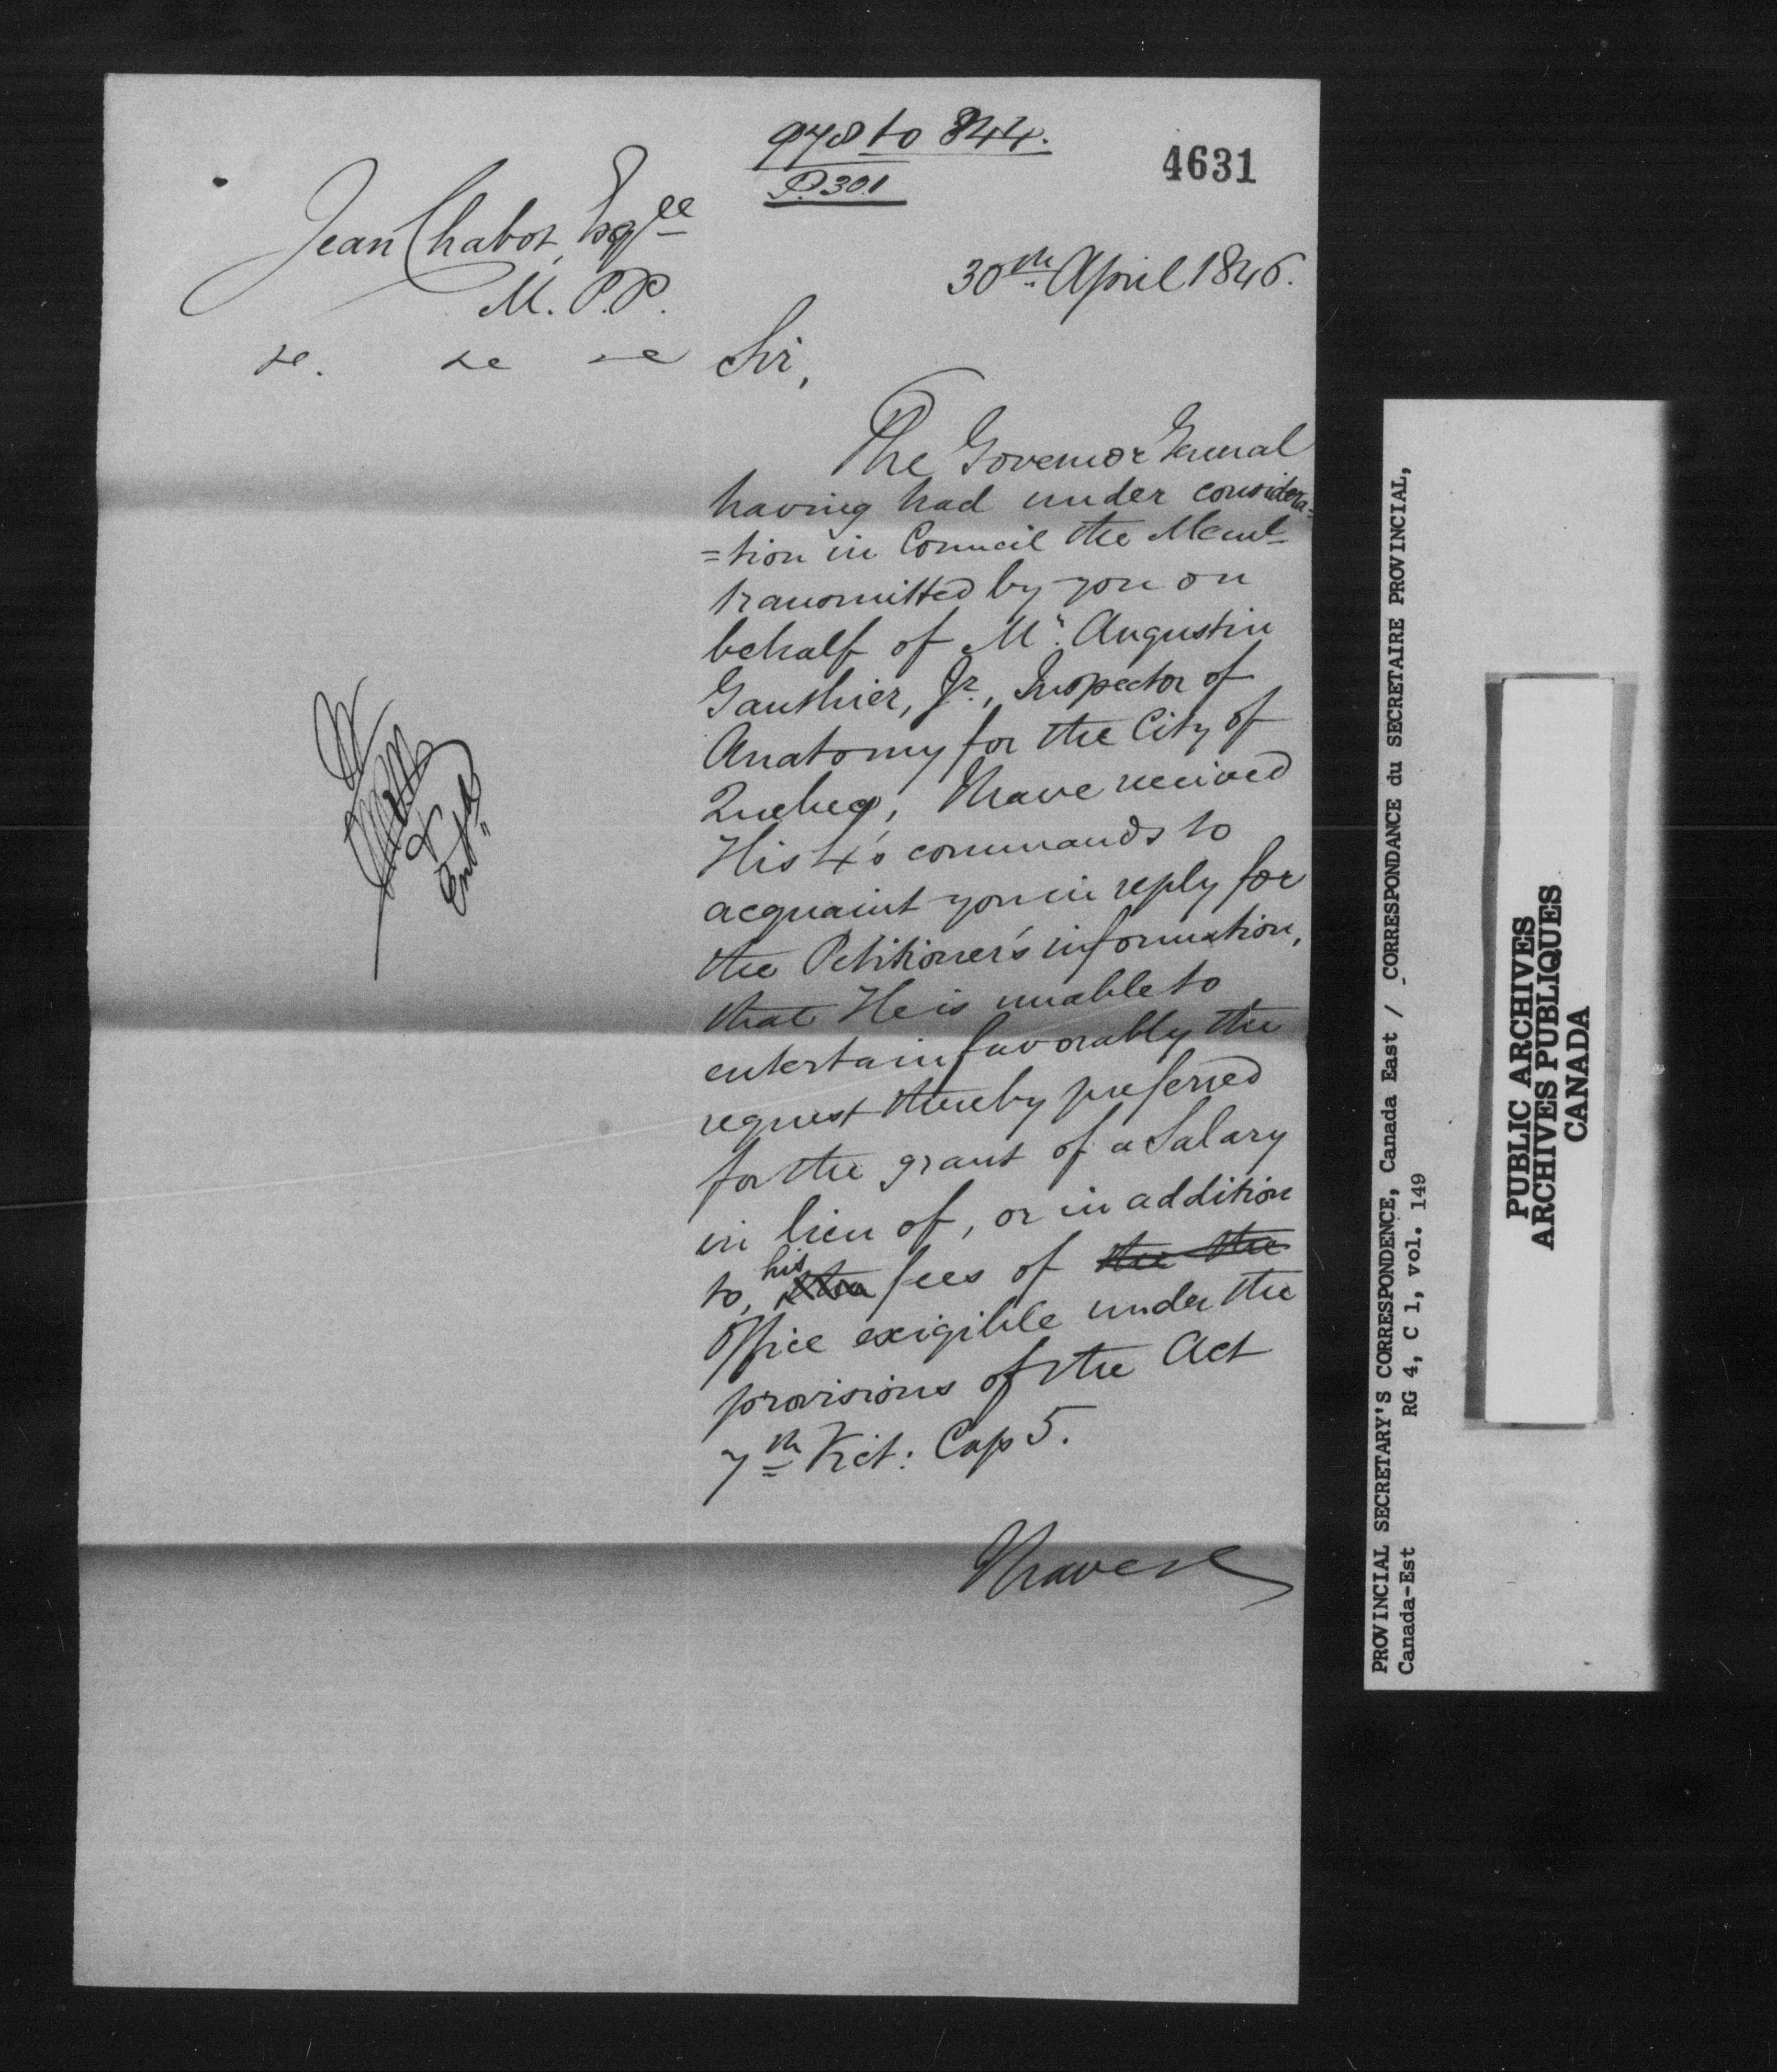 978 to 844.
P. 301
4631
Jean Chabot, Esqre
M. P. P.
&c. &c &c
30th April 1846.
Sir,
The Governor General
having had under considera=
=tion in Council the Meml
transmitted by you on
behalf of Mr. Augustin
Gauthier, Jr., Inspector of
Anatomy for the City of
Quebec, I have received
His Ex's commands to
acquaint you in reply for
the Petitioner's information,
that He is unable to
entertain favorably the
request thereby preferred
for the grant of a Salary
in lieu of, or in addition
to, his the fees of the the
Office exigible under the
provisions of the Act
7th Vict: Cap 5.
I have &c
Entd
PROVINCIAL SECRETARY'S CORRESPONDENCE, Canada East / CORRESPONDANCE du SECRETAIRE PROVINCIAL,
Canada-Est RG 4, C 1, vol. 149
PUBLIC ARCHIVES
ARCHIVES PUBLIQUES
CANADA